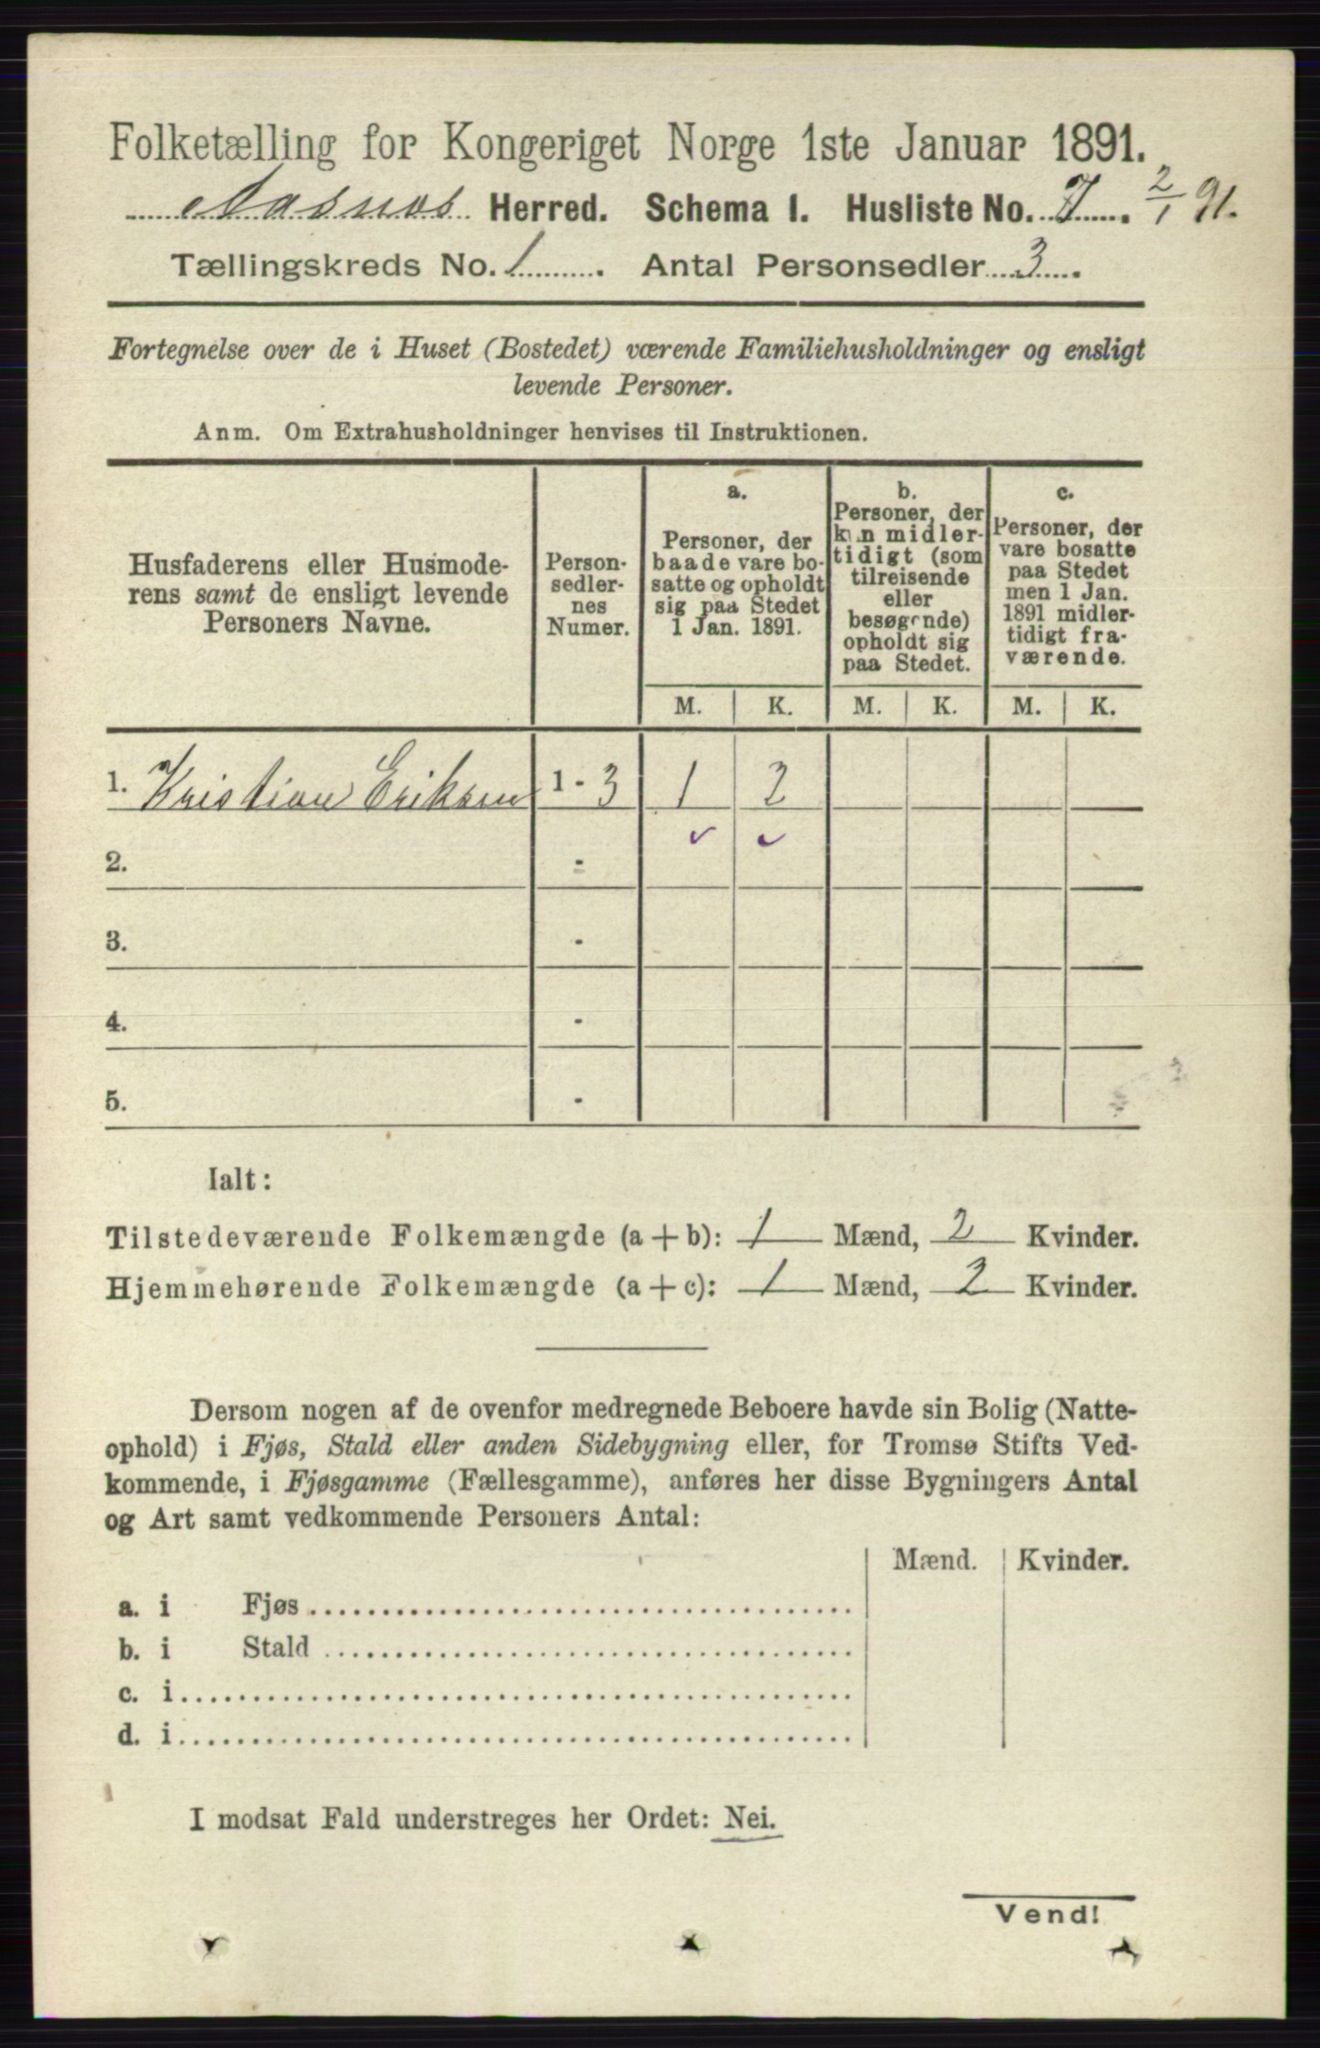 Folketælling for Kongeriget Norge 1ste Januar 1891.
Aasnes Herred. Schema 1. Husliste No. 7. 2/1 91.
Tællingskreds No. 1. Antal Personsedler 3.
Fortegnelse over de i Huset (Bostedet) værende Familiehusholdninger og ensligt
levende Personer.
Anm. Om Extrahusholdninger henvises til Instruktionen.
Husfaderens eller Husmode-
rens samt de ensligt levende
Personers Navne.
Person-
sedler-
nes
Numer.
a.
Personer, der
baade vare bo-
satte og opholdt
sig paa Stedet
1 Jan. 1891.
b.
Personer, der
kun midler-
tidigt (som
tilreisende
eller
besøgende)
opholdt sig
paa Stedet.
c.
Personer, der
vare bosatte
paa Stedet
men 1 Jan.
1891 midler-
tidigt fra-
værende.
M. K. M. K. M. K.
1. Kristian Eriksen 1 - 3 1 2
2. -
3. -
4. -
5. -
Ialt:
Tilstedeværende Folkemængde (a + b): 1 Mænd, 2 Kvinder.
Hjemmehørende Folkemængde (a + c): 1 Mænd, 2 Kvinder.
Dersom nogen af de ovenfor medregnede Beboere havde sin Bolig (Natte-
ophold) i Fjøs, Stald eller anden Sidebygning eller, for Tromsø Stifts Ved-
kommende, i Fjøsgamme (Fællesgamme), anføres her disse Bygningers Antal
og Art samt vedkommende Personers Antal:
Mænd. Kvinder.
a. i Fjøs
b. i Stald
c. i
d. i
I modsat Fald understreges her Ordet: Nei.
Vend!